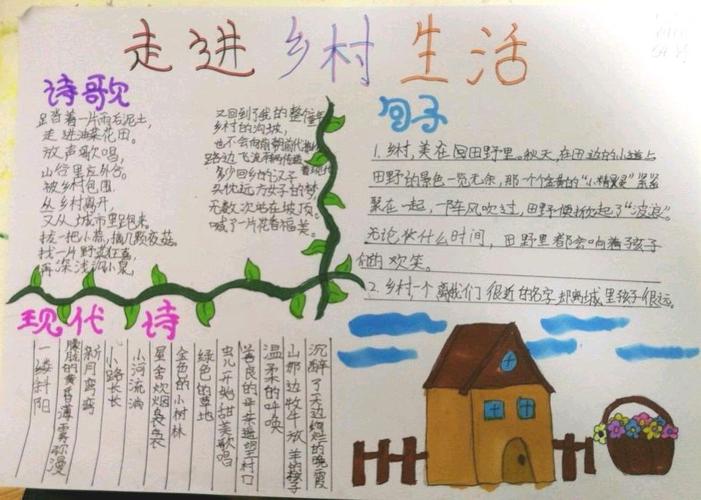 走进乡村生活
诗歌
足沓着一片雨后泥土,
走进油菜花田。
放声歌唱,
山行里左外谷。
被乡村包围
从乡村离开,
又从城市里跑来。
拔一把小蒜,摘几颗夜菇。
找一片野
再深浅沟小菜,
又回到了我的整住
乡村的沟坡,
也不会向
路边飞流
多少回乡的汉子
头忱远方女子的梦
无数次站在坡顶。
喊了一片花香福美。
句子
1.乡村,美在回田野里。秋天,在田边的小道上
田野的景色一览无余,那一个个金黄的“小精灵”紧紧
聚在一起,一阵风吹过,田野便掀起了“波浪”。
无论什么时间,田野里都会响着孩子
们的欢笑。
2.乡村一个离我们很近的名字却离城里孩子很远。
现代诗
沉醉了天边绚烂的晚霞
山那边牧牛放羊的孩子
温柔的呼唤
善良的母亲村口
虫儿开始甜美歌唱
绿色的草地
金色的小树林
星舍炊烟袅袅
小河流淌
小路长长
新月弯弯
朦胧的黄昏薄雾弥漫
一缕斜阳